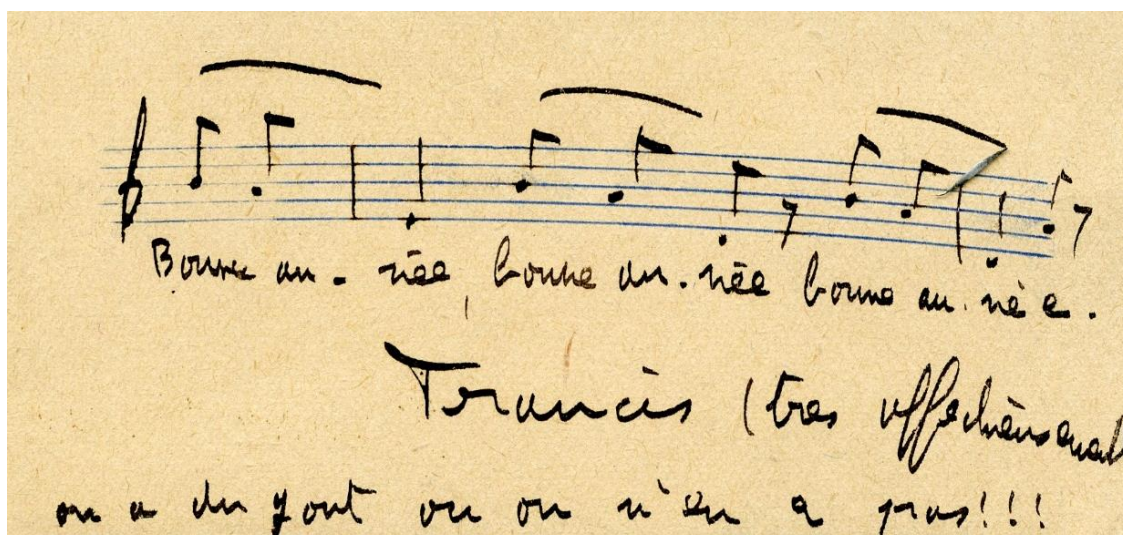 Bonne an - née, bonne an. née bonne an. né e.
Francis (très affectueusement
on a du gout ou on n'en a pas!!!